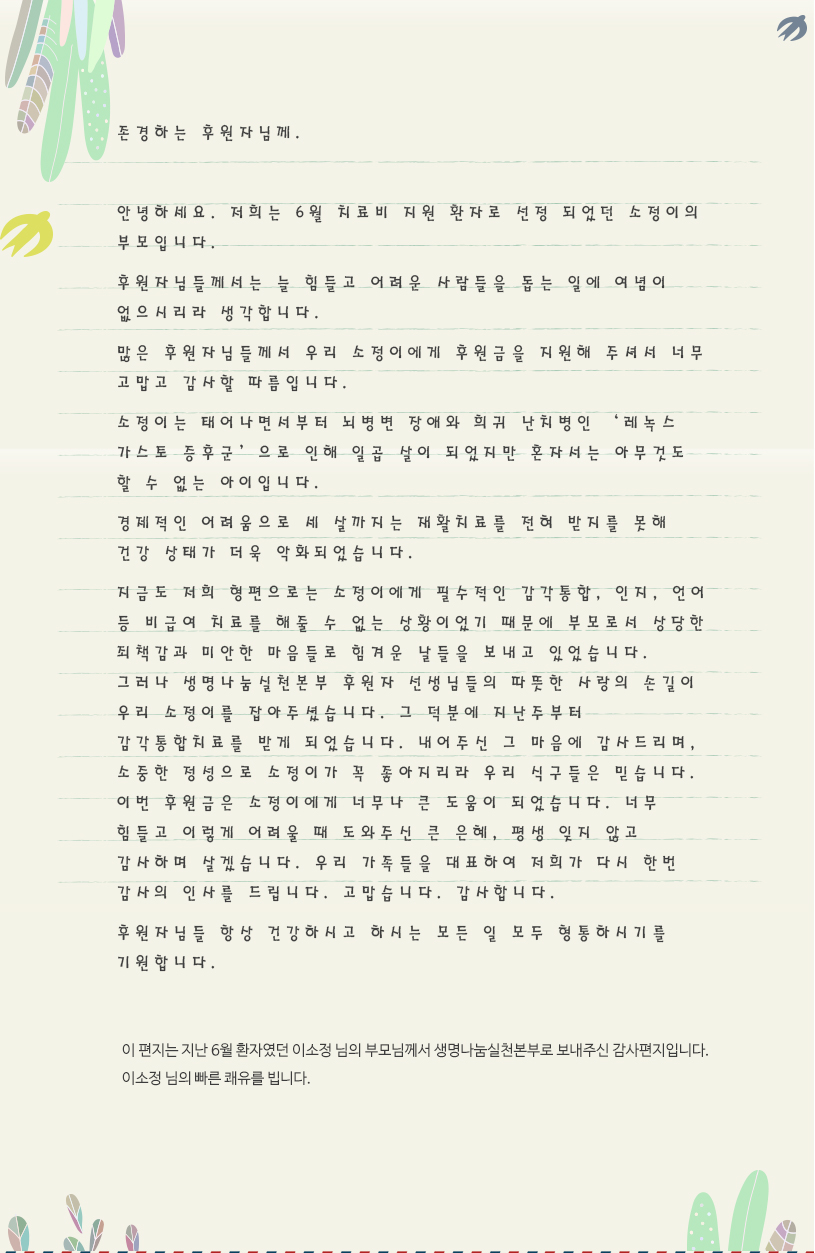 존경하는 후원자님께.
안녕하세요. 저희는 6월 치료비 지원 환자로 선정 되었던 소정이의
부모입니다.
후원자님들께서는 늘 힘들고 어려운 사람들을 돕는 일에 여념이
없으시리라 생각합니다.
많은 후원자님들께서 우리 소정이에게 후원금을 지원해 주셔서 너무
고맙고 감사할 따름입니다.
소정이는 태어나면서부터 뇌병변 장애와 희귀 난치병인 ‘레녹스
가스토 증후군’으로 인해 일곱 살이 되었지만 혼자서는 아무것도
할 수 없는 아이입니다.
경제적인 어려움으로 세 살까지는 재활치료를 전혀 받지를 못해
건강 상태가 더욱 악화되었습니다.
지금도 저희 형편으로는 소정이에게 필수적인 감각통합, 인지, 언어
등 비급여 치료를 해줄 수 없는 상황이었기 때문에 부모로서 상당한
죄책감과 미안한 마음들로 힘겨운 날들을 보내고 있었습니다.
그러나 생명나눔실천본부 후원자 선생님들의 따뜻한 사랑의 손길이
우리 소정이를 잡아주셨습니다. 그 덕분에 지난주부터
감각통합치료를 받게 되었습니다. 내어주신 그 마음에 감사드리며,
소중한 정성으로 소정이가 꼭 좋아지리라 우리 식구들은 믿습니다.
이번 후원금은 소정이에게 너무나 큰 도움이 되었습니다. 너무
힘들고 이렇게 어려울 때 도와주신 큰 은혜, 평생 잊지 않고
감사하며 살겠습니다. 우리 가족들을 대표하여 저희가 다시 한번
감사의 인사를 드립니다. 고맙습니다. 감사합니다.
후원자님들 항상 건강하시고 하시는 모든 일 모두 형통하시기를
기원합니다.
이 편지는 지난 6월 환자였던 이소정 님의 부모님께서 생명나눔실천본부로 보내주신 감사편지입니다.
이소정 님의 빠른 쾌유를 빕니다.